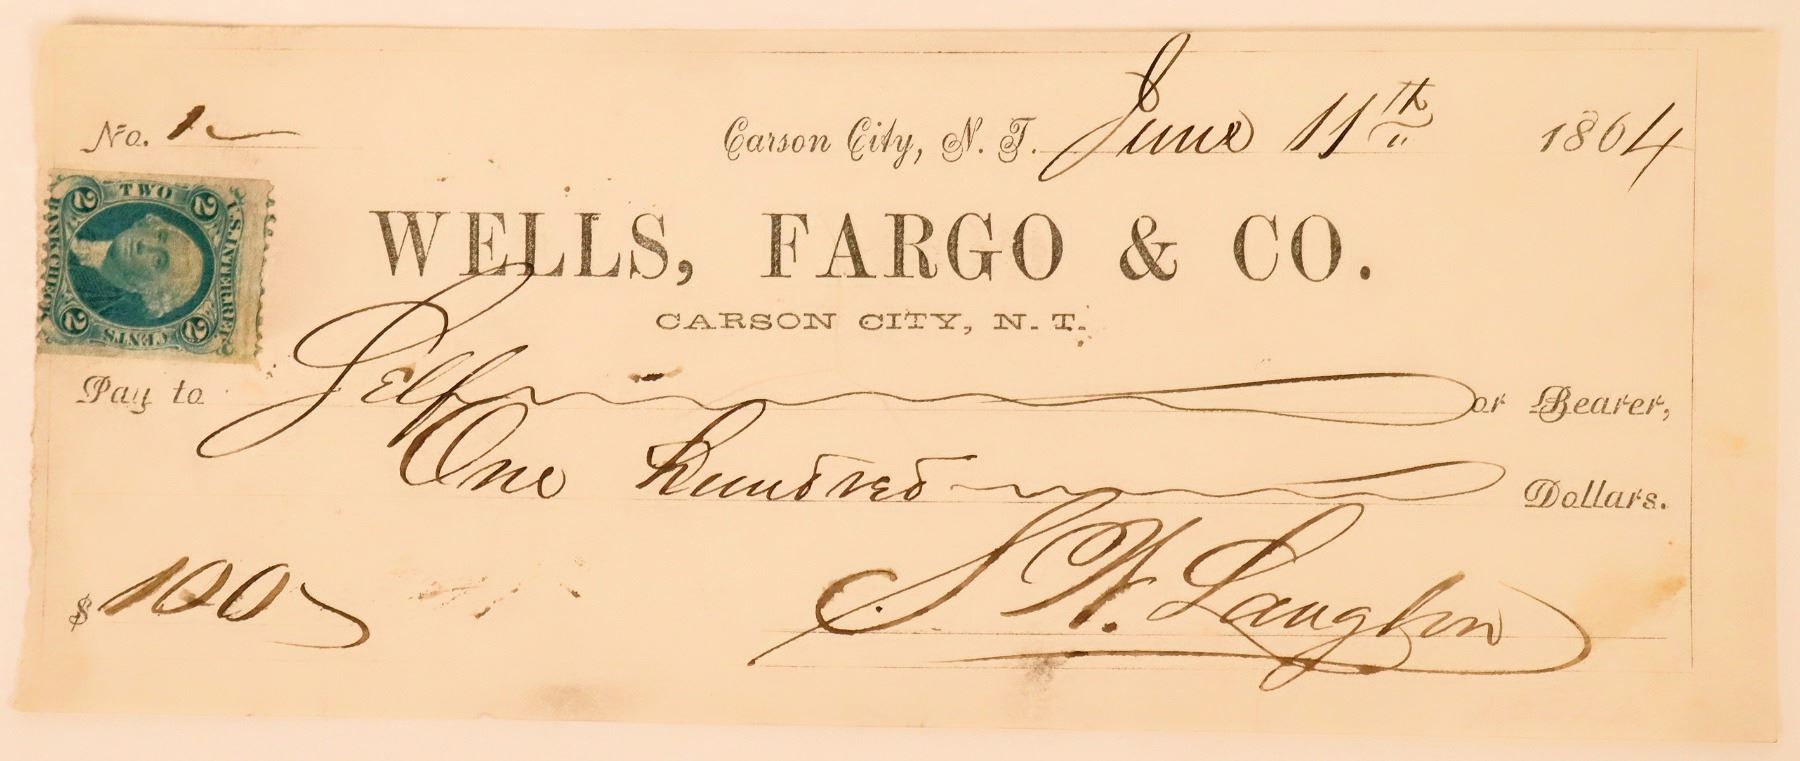 No. 1
Carson City, N. T. June 11th 1864
TWO
2 2
U.S. INTER. REV.
BANK CHECK
2 2
CENTS
WELLS, FARGO & CO.
CARSON CITY, N. T.
Pay to Self or Bearer,
One Hundred Dollars.
$ 100
S. W. Langhon